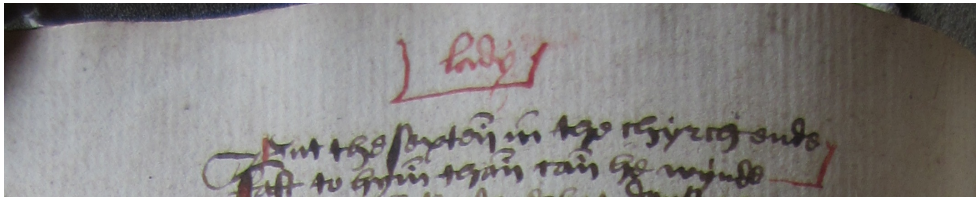 lady
But the sexteyn in the chyrch ende
Fast to hym than can he wynde